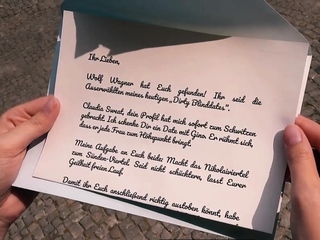 Ihr Lieben,
Wolf Wagner hat Euch gefunden! Ihr seid die
Auserwählten meines heutigen „Dirty Blinddates".
Claudia Sweat, dein Profil hat mich sofort zum Schwitzen
gebracht. Ich schenke Dir ein Date mit Gino. Er rühmt sich,
dass er jede Frau zum Höhepunkt bringt.
Meine Aufgabe an Euch beide: Macht das Nikolaiviertel
zum Sünden-Viertel. Seid nicht schüchtern, lasst Eurer
Geilheit freien Lauf.
Damit ihr Euch anschließend richtig austoben könnt, habe